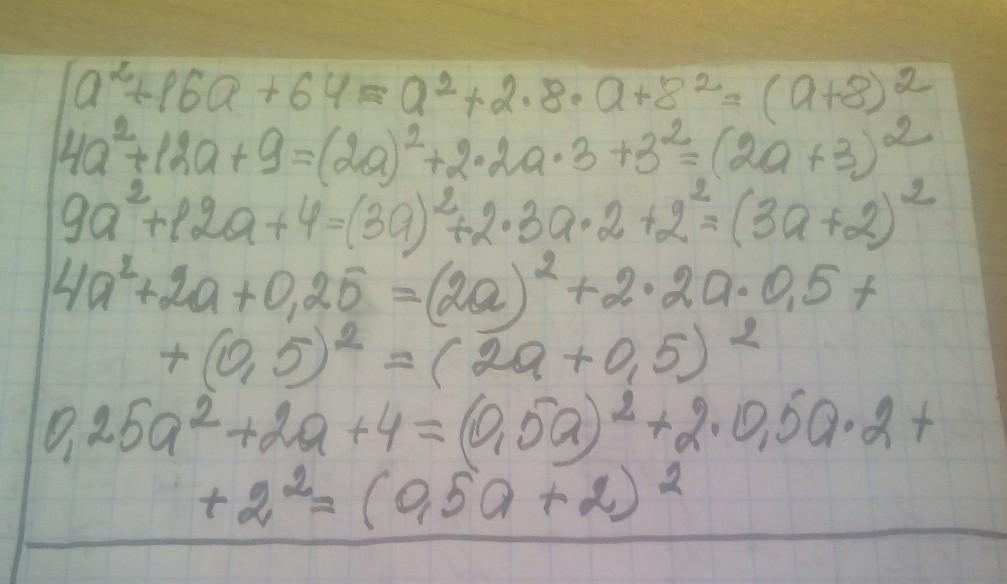 a²+16a+64=a²+2·8·a+8²=(a+8)²
4a²+12a+9=(2a)²+2·2a·3+3²=(2a+3)²
9a²+12a+4=(3a)²+2·3a·2+2²=(3a+2)²
4a²+2a+0,25=(2a)²+2·2a·0,5+
+(0,5)²=(2a+0,5)²
0,25a²+2a+4=(0,5a)²+2·0,5a·2+
+2²=(0,5a+2)²